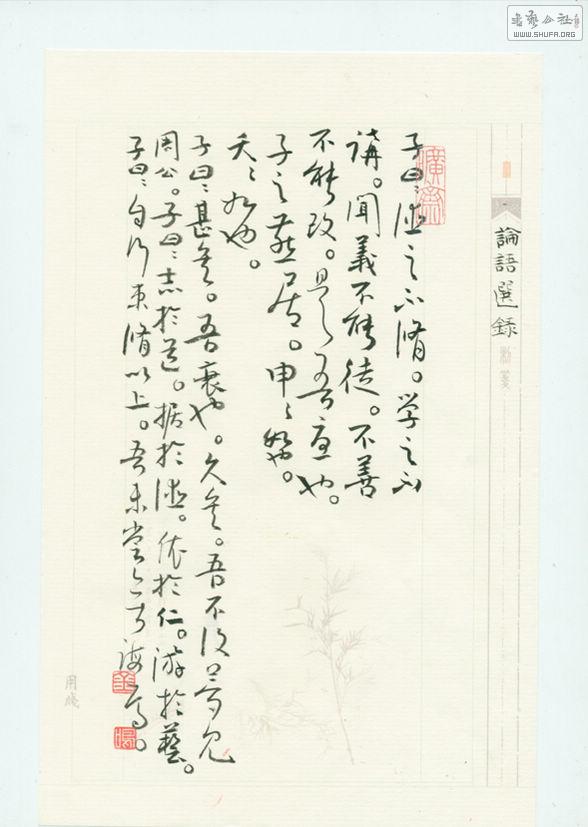 书艺公社
WWW.SHUFA.ORG
一
論語選録
子曰：德之不脩。学之不
講。聞義不能徙。不善
不能改。是吾憂也。
子之燕居。申〻如也。
夭〻如也。
子曰：甚矣。吾衰也。久矣。吾不復夢見
周公。子曰：志於道。据於德。依於仁。游於藝。
子曰：自行束脩以上。吾未嘗無誨焉。
用箋